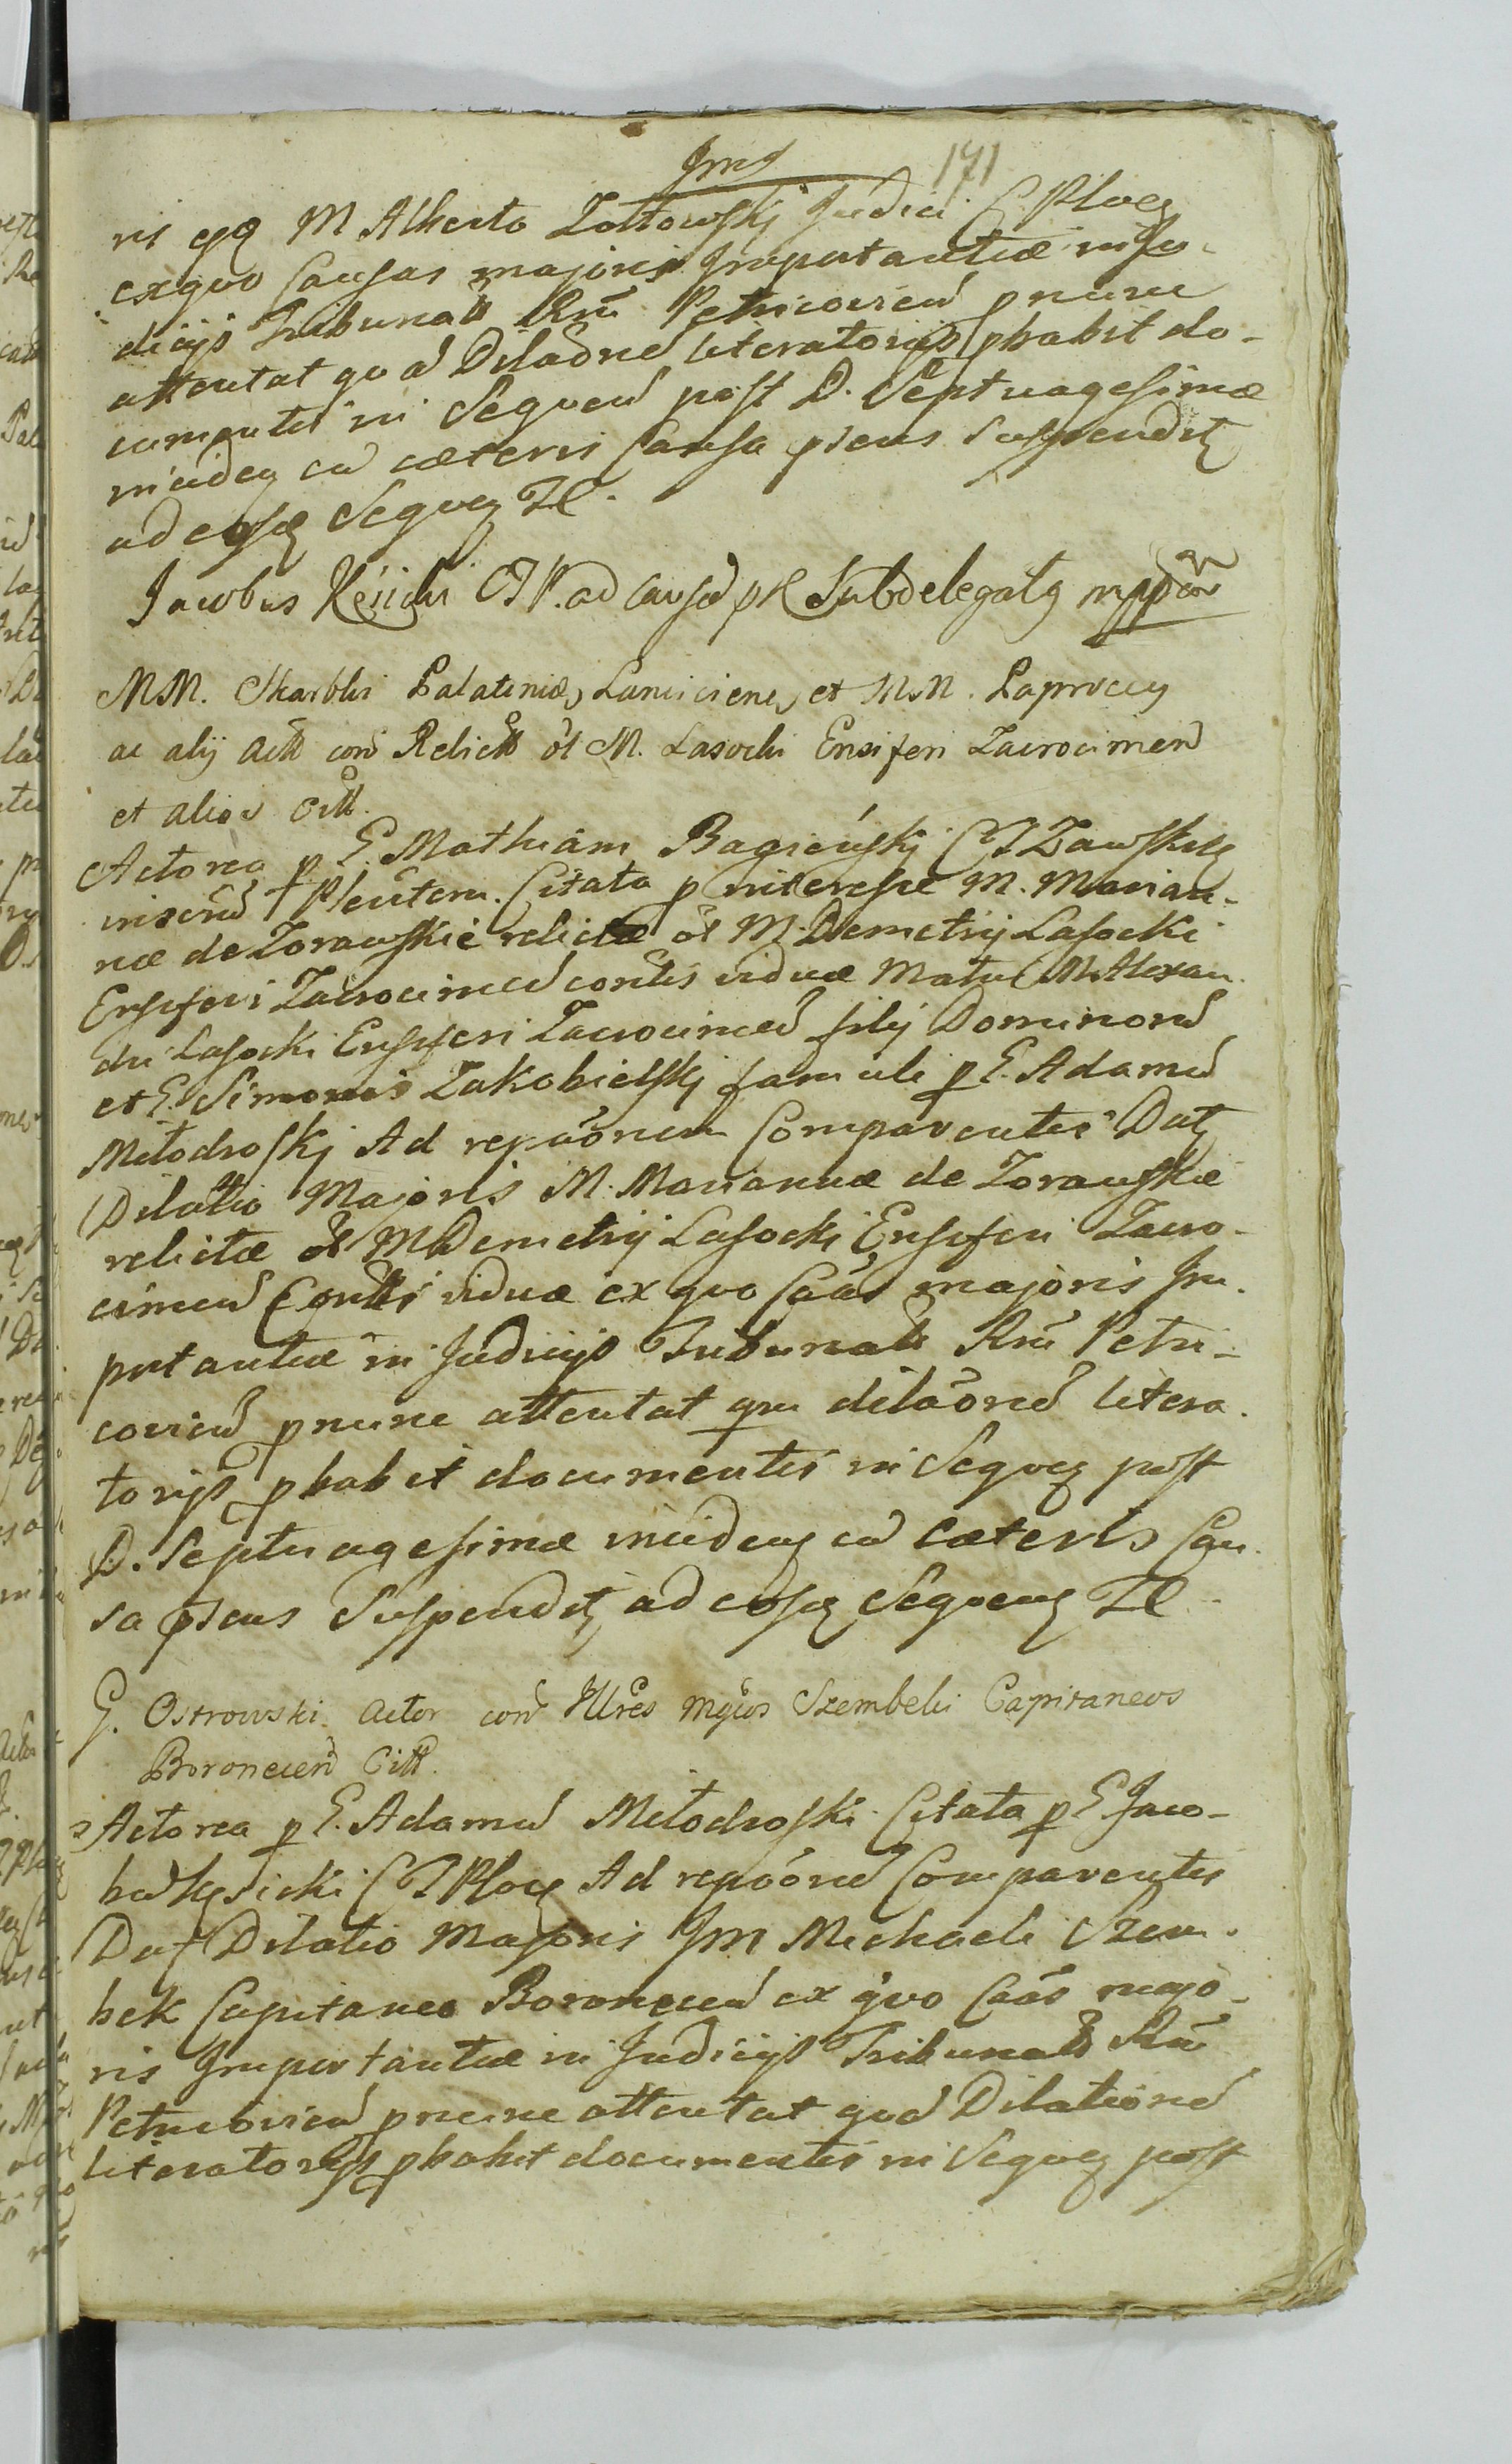 Jm 171
ris exq M Alberto Zołtowskj Judici C. Ploc
ex quo Causas majoris Importantiæ in Ju-
diciis Tribunalll Rni Petricovien pnunc
attentat quod Dilaõne literatorijs phabit do-
cumentis in Sequen post D. Septuagesimæ
inciden cu cæteris Causa pñs Suspendit
ad eosq Sequen TC.
Jacobus Kęsicki CJP. ad causã pł Subdelegatq mpp
MM. Skarbki Palatinid, Lanciciens, et MM. Łaprocey
ac alij Actt con Relictt ol M. Lasocki Ensiferi Zacrocimen
et alios Citt.
Actorea p G. Mathiam Bagieńskj CJ Zawskrz
inscrid Plenten. Citata p interesse M. Marian-
næ de Zorawskie relictæ ol M. Demetrij Lasocki
Ensiferi Zacrocimen contis viduæ Matris M. Alexan-
dri Lasocki Ensiferi Zacrocimen filij Dominorũ
et G. Simonis Zakobielskj famuli p G. Adamũ
Młodroskj Ad repõonem Comparentes Dat
Dilatio Majoris M. Mariannæ de Zorawskie
relictæ ol M Demetrij Lasockj Ensiferi Zacro-
cimen Contis viduæ ex quo Caãs majoris Im-
portantiæ in Judicijs Tribunalll Rni Petri-
covien pnunc attentat qm dilãone litera-
torijs phabit documentis in Sequen post
D. Septuagesimæ inciden cu Cæteris Cau-
sa pñs Suspendit ad eosq Sequen TC
G. Ostrowski Actor con Illres Mgcos Szembeki Capitaneos
Boronecen Citt.
Actorea p G. Adamũ Młodroski Citata p G. Jaco-
bũ Kęsicki CJ Ploc Ad repõone Comparentes
Dat Dilatio Majoris Jm Michaeli Szem-
bek Capitaneo Boronecen ex quo Caãs majo-
ris Importantiæ in Judicijs Tribunalll Rni
Petricovien pnunc attentat quod Dilatione
literatorijs phabit documentis in Sequen post